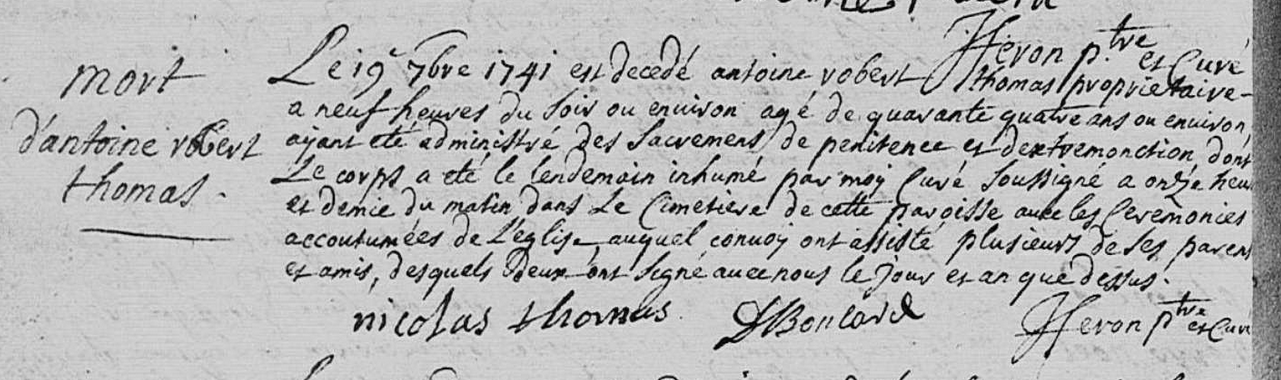 Heron p.tre et Curé
mort
d'antoine robert
thomas.
Le 19e 7bre 1741 est decedé antoine robert thomas proprietaire
a neuf heures du soir ou environ agé de quarante quatre ans ou environ,
ayant eté administré des Sacremens de penitence et dextremonction, dont
Le corps a eté le lendemain inhumé par moy Curé Soussigné a onze heu
et demie du matin dans Le Cimetiere de cette paroisse avec les Ceremonies
accoutumées de L'eglise, auquel convoy ont assisté plusieurs de ses parens
et amis, desquels deux ont signé avec nous le jour et an que dessus.
nicolas thomas Boulard Heron ptre et Curé